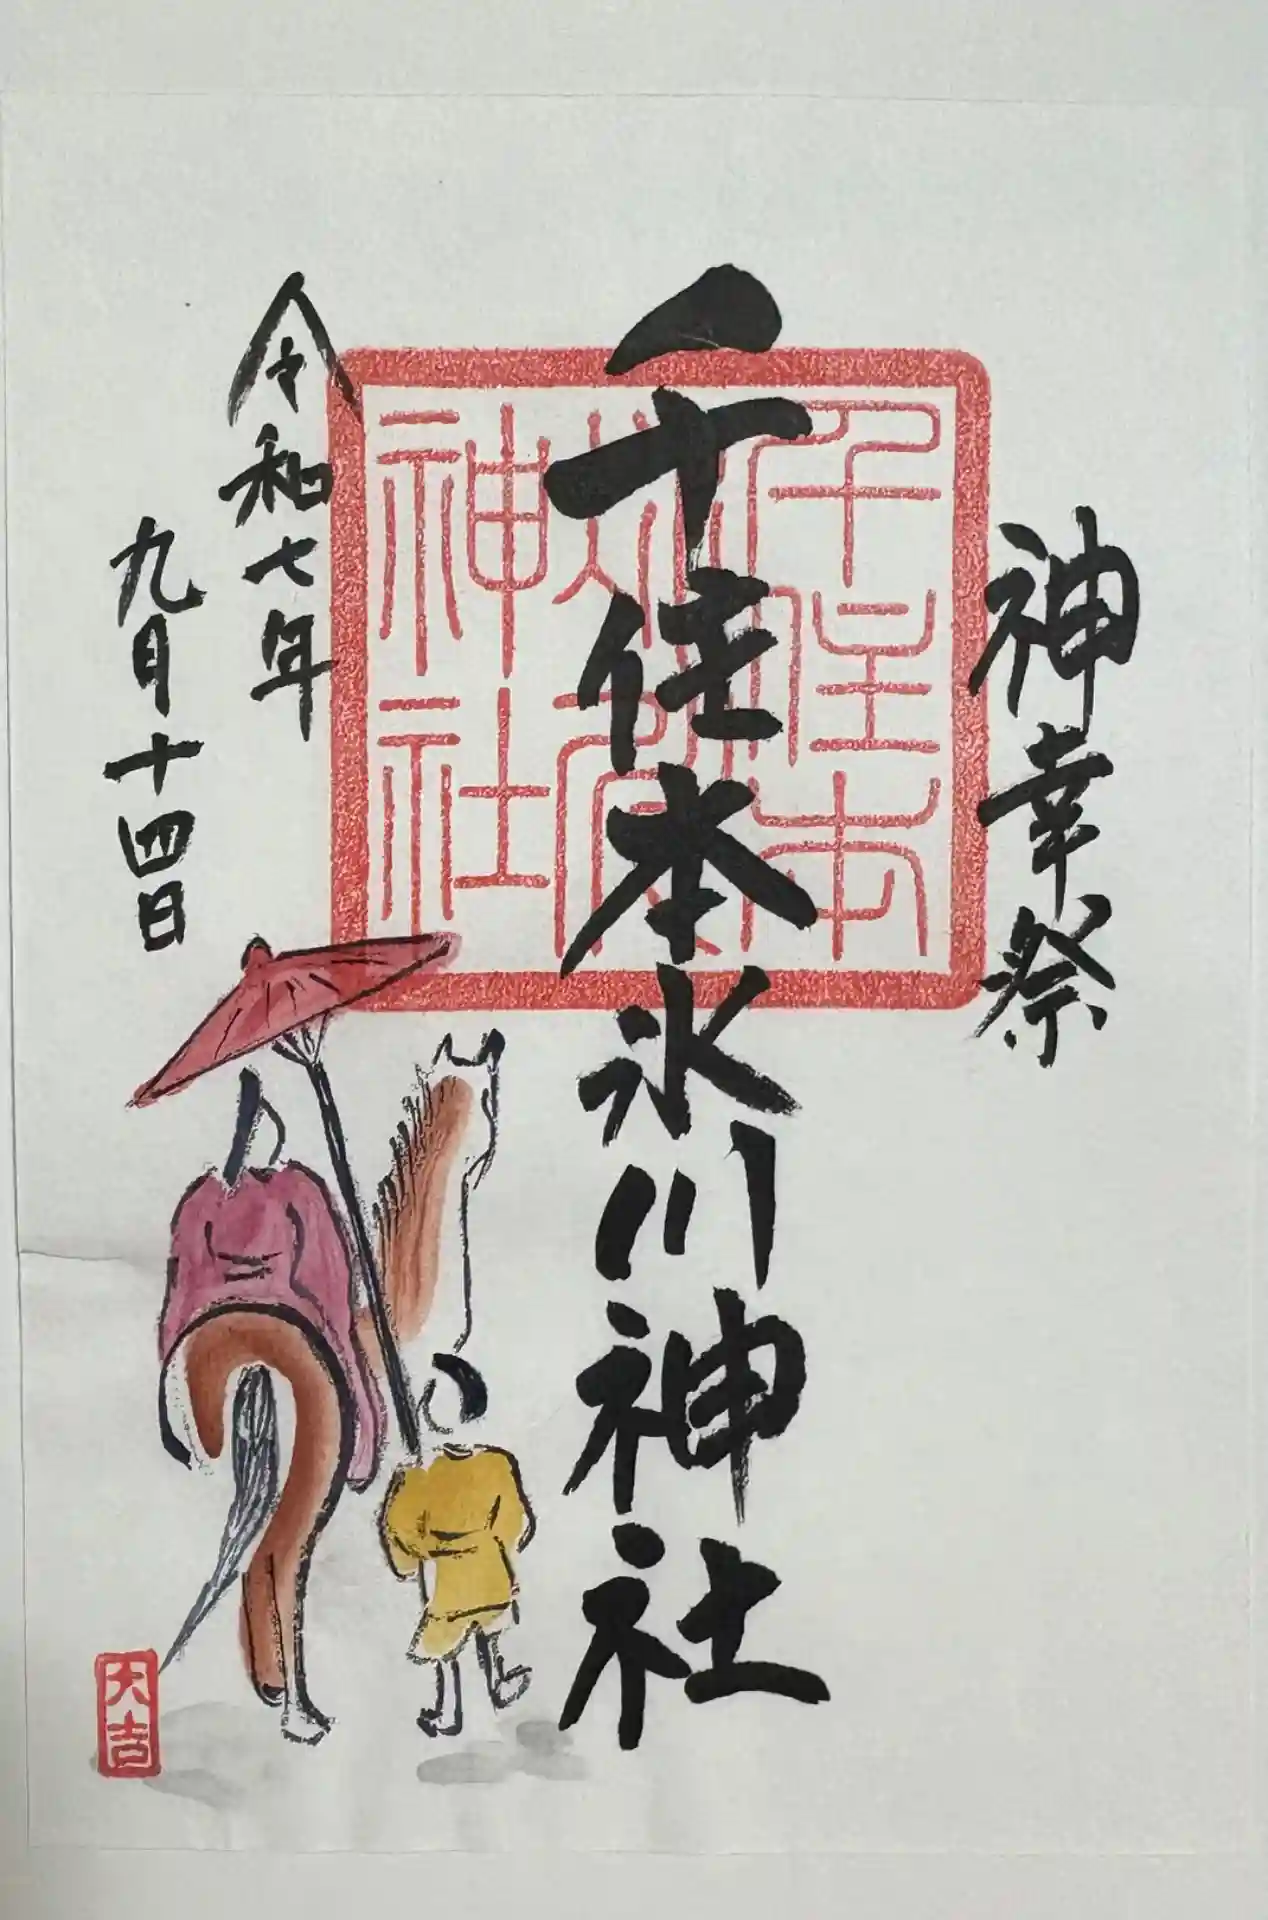 神幸祭
千住本氷川神社
千住本
氷川
神社
令和七年
九月十四日
大吉